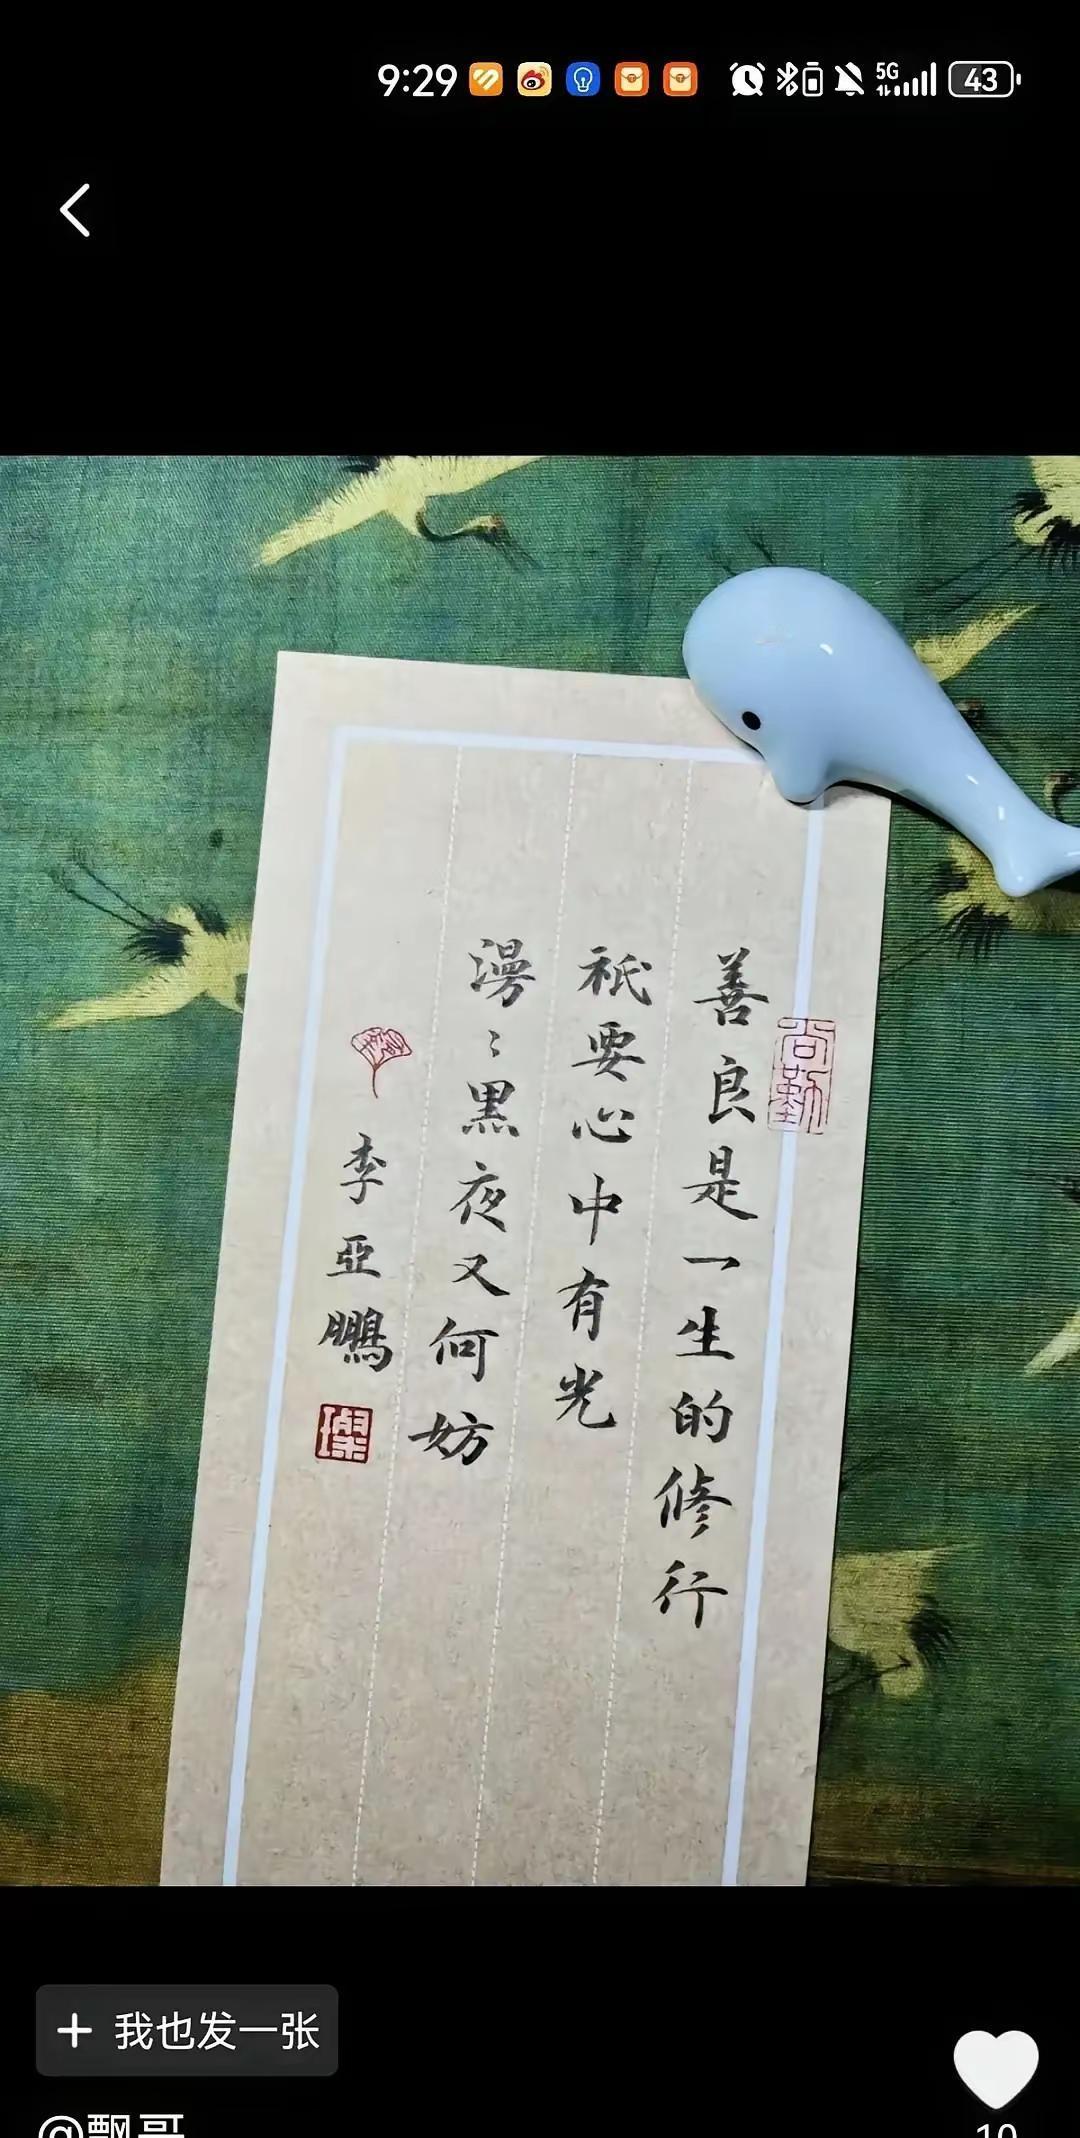 9:29
5G
43
善良是一生的修行
祇要心中有光
漫〻黑夜又何妨
李亞鵬
尚勤
我也发一张
@飘哥
10